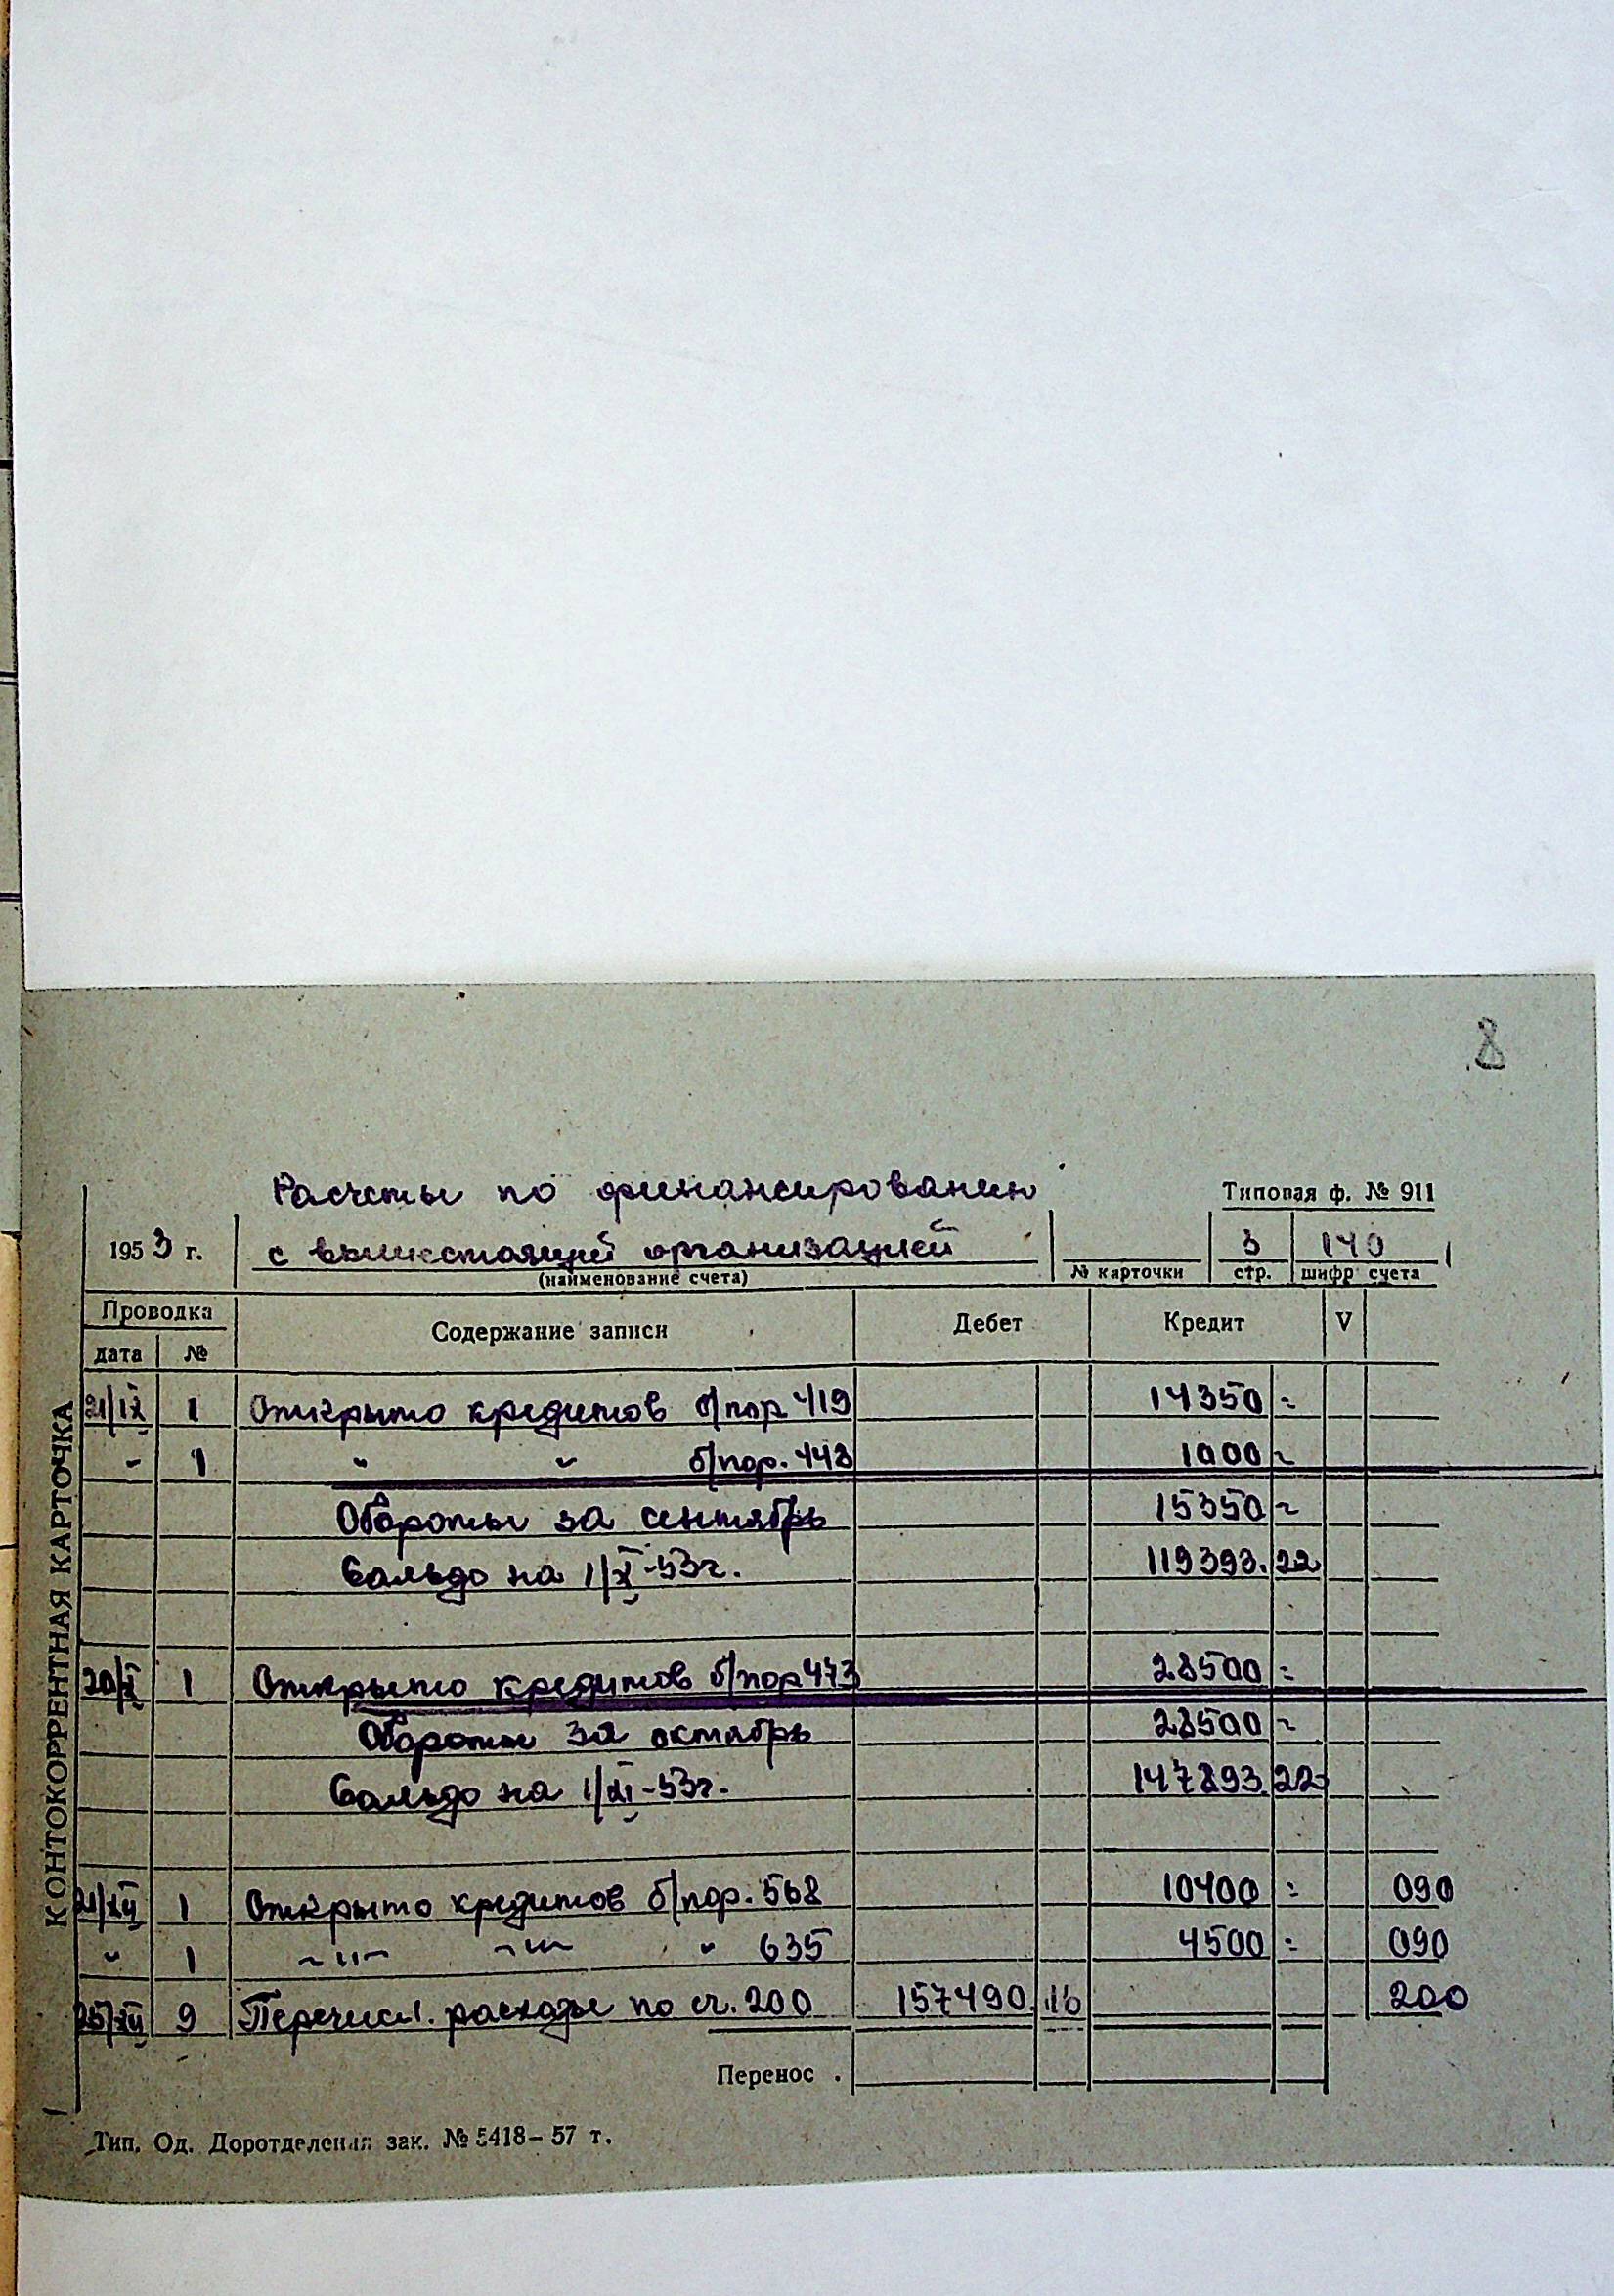 8
Расчеты по финансированию
Типовая ф. № 911
1953 г. с вышестоящей организацией 3 140
(наименование счета) № карточки стр. шифр счета
Проводка Содержание записи Дебет Кредит V
дата №
КОНТОКОРРЕНТНАЯ КАРТОЧКА
21/IX 1 Открыто кредитов б/пор 419 14350 =
" 1 " " б/пор. 448 1000 =
Обороты за сентябрь 15350 =
Сальдо на 1/X-53г. 119393.22
20/X 1 Открыто кредитов б/пор 473 28500 =
Обороты за октябрь 28500 =
Сальдо на 1/XI-53г. 147893.22
21/XII 1 Открыто кредитов б/пор. 568 10400 = 090
" 1 -"- -"- " 635 4500 = 090
25/XII 9 Перечисл. расходы по сч. 200 157490.16 200
Перенос .
Тип. Од. Доротделения зак. № 5418–57 т.